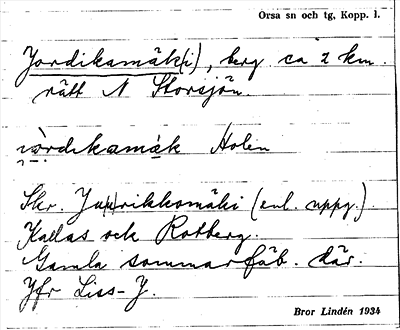 Orsa sn och tg, Kopp. l.
Jordikamäk(i), berg ca 2 km.
rätt N Storsjön
jòrdıkamäk Holen
Skr. Ju(u)rikkomäki (enl. uppg.).
Kallas ock Rotberg.
Gamla sommarfäb. där.
Jfr Liss-J.
Bror Lindén 1934